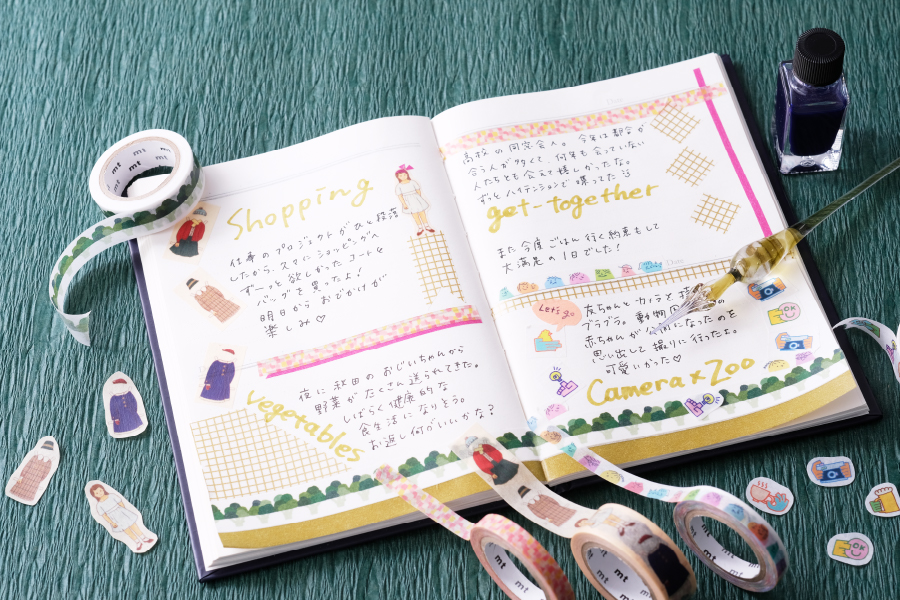 Shopping
仕事のプロジェクトがひと段落
したから、スマにショッピングへ
ずーっと欲しかったコートと
バッグを買ったよ!
明日からおでかけが
楽しみ♡
vegetables
夜に秋田のおじいちゃんから
野菜がたくさん送られてきた。
しばらく健康的な
食生活になりそう。
お返し何がいいかな?
高校の同窓会へ。今年は都合が
合う人が多くて、何年も会っていない
人たちとも会えて嬉しかったな。
ずっとハイテンションで喋ってた
get-together
また今度ごはん行く約束もして
大満足の1日でした!
Let's go
友ちゃんとカメラを持
ブラブラ。動物園
赤ちゃんが公開になったのを
思い出して撮りに行ったよ。
可愛いかった♡
Camera×Zoo
mt
mt
mt
mt
mt
mt